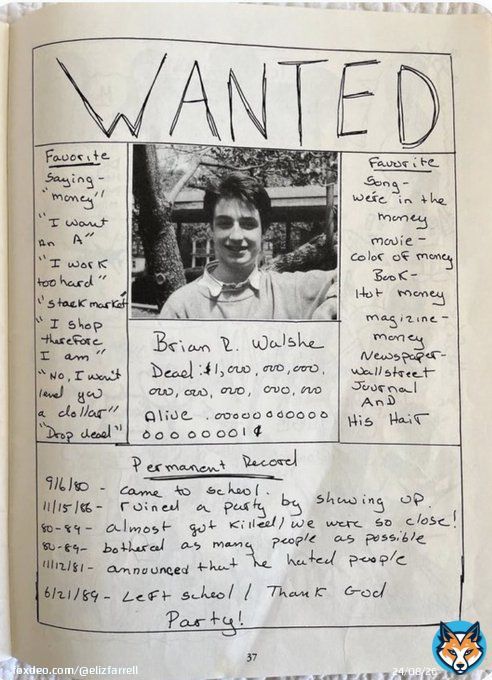 WANTED
Favorite
Saying-
"money"
"I want
an A"
"I work
too hard"
"stock market"
"I shop
therefore
I am"
"No, I won't
lend you
a dollar"
"Drop dead"
Brian R. Walshe
Dead: $1,000,000,000,
000,000,000,000,000
Alive .00000000000
00000001¢
Favorite
Song-
we're in the
money
movie-
color of money
Book-
Hot money
magizine-
money
Newspaper-
Wallstreet
Journal
AND
His Hair
Permanent Record
9/6/80 - came to school.
11/15/86 - ruined a party by showing up.
80-89 - almost got killed / we were so close!
80-89 - bothered as many people as possible
11/12/81 - announced that he hated people
6/21/89 - Left school / Thank God
Party!
37
foxdeo.com/@elizfarrell